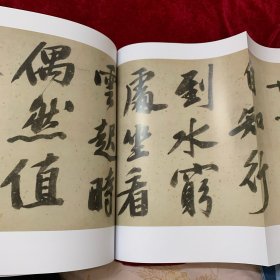 自知行
到水窮
處坐看
雲起時
偶然值